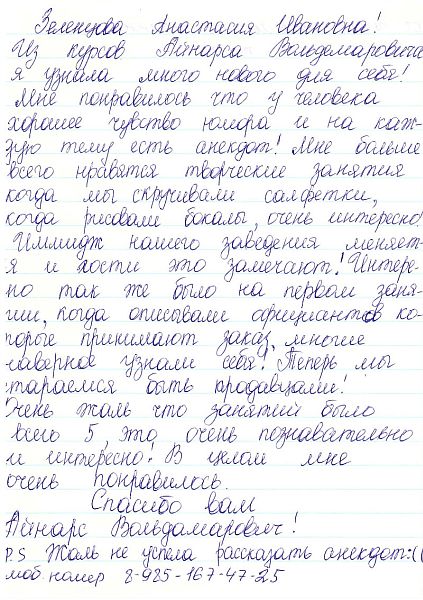 Зеленцова Анастасия Ивановна!
Из курсов Айнарса Вольдамаровича
я узнала много нового для себя!
Мне понравилось что у человека
хорошее чувство юмора и на каж-
дую тему есть анекдот! Мне больше
всего нравятся творческие занятия
когда мы скручивали салфетки,
когда рисовали бокалы, очень интересно!
Иммидж нашего заведения меняет-
я и гости это замечают! Интере-
но так же было на первом заня-
тии, когда описывали официантов ко-
торые принимают заказ, многие
наверное узнали себя! Теперь мы
тараемся быть продавцами!
Очень жаль что занятий было
всего 5, это очень познавательно
и интересно! В целом мне
очень понравилось.
Спасибо вам
Айнарс Вольдамарович!
P.S Жаль не успела рассказать анекдот:((
моб. номер 8-985-167-47-25